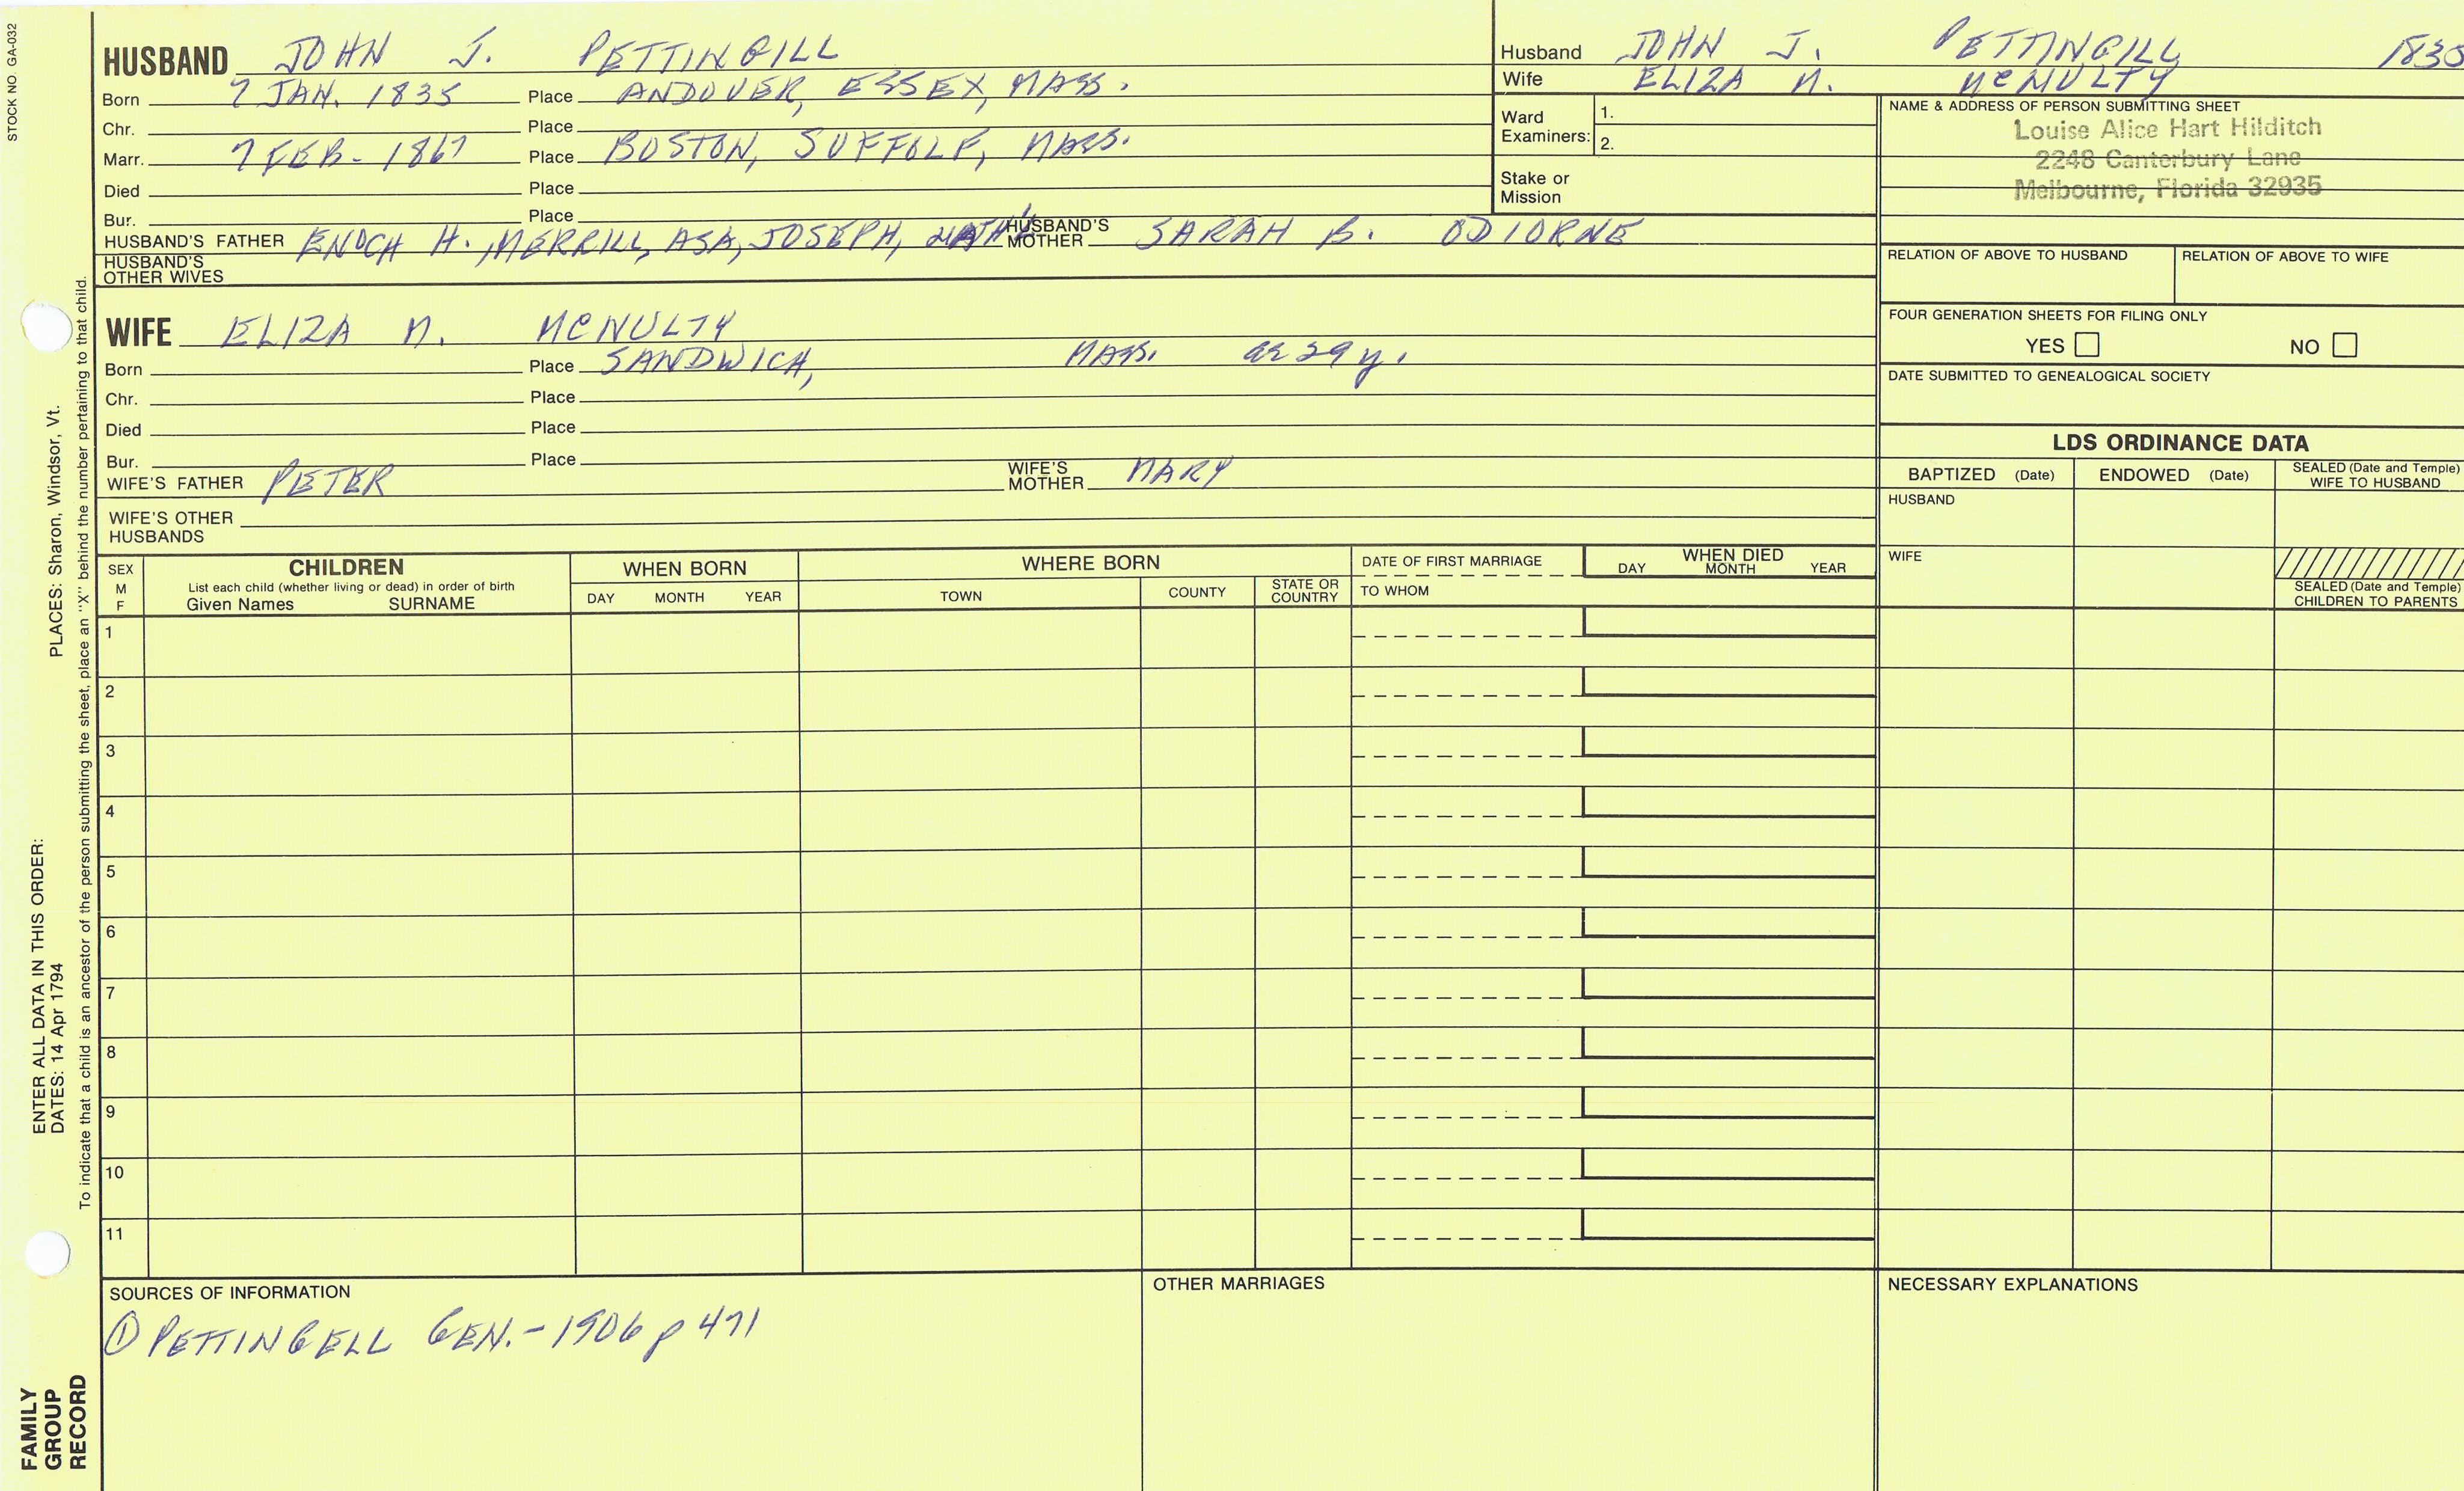 STOCK NO GA-032
HUSBAND JOHN J. PETTINGILL
Born 7 JAN. 1835 Place ANDOVER, ESSEX, MASS.
Chr. Place
Marr. 7 FEB - 1867 Place BOSTON, SUFFOLK, MASS.
Died Place
Bur. Place
HUSBAND'S FATHER ENOCH H., MERRILL, ASA, JOSEPH, HUSBAND'S MOTHER SARAH B. ODIORNE
HUSBAND'S OTHER WIVES
Husband JOHN J. PETTINGILL
Wife ELIZA M. McNULTY
Ward Examiners: 1.
2.
Stake or Mission
NAME & ADDRESS OF PERSON SUBMITTING SHEET
Louise Alice Hart Hilditch
2248 Canterbury Lane
Melbourne, Florida 32935
RELATION OF ABOVE TO HUSBAND RELATION OF ABOVE TO WIFE
FOUR GENERATION SHEETS FOR FILING ONLY
YES NO
DATE SUBMITTED TO GENEALOGICAL SOCIETY
WIFE ELIZA M. McNULTY
Born Place SANDWICH, MASS. ae 29 y.
Chr. Place
Died Place
Bur. Place
WIFE'S FATHER PETER WIFE'S MOTHER MARY
WIFE'S OTHER HUSBANDS
LDS ORDINANCE DATA
BAPTIZED (Date) ENDOWED (Date) SEALED (Date and Temple) WIFE TO HUSBAND
HUSBAND
WIFE
SEALED (Date and Temple) CHILDREN TO PARENTS
SEX M F
CHILDREN
List each child (whether living or dead) in order of birth
Given Names SURNAME
WHEN BORN
DAY MONTH YEAR
WHERE BORN
TOWN COUNTY STATE OR COUNTRY
DATE OF FIRST MARRIAGE
TO WHOM
WHEN DIED
DAY MONTH YEAR
1
2
3
4
5
6
7
8
9
10
11
SOURCES OF INFORMATION
① PETTINGELL GEN. - 1906 p 471
OTHER MARRIAGES
NECESSARY EXPLANATIONS
ENTER ALL DATA IN THIS ORDER:
DATES: 14 Apr 1794 PLACES: Sharon, Windsor, Vt.
To indicate that a child is an ancestor of the person submitting the sheet, place an "X" behind the number pertaining to that child.
FAMILY
GROUP
RECORD